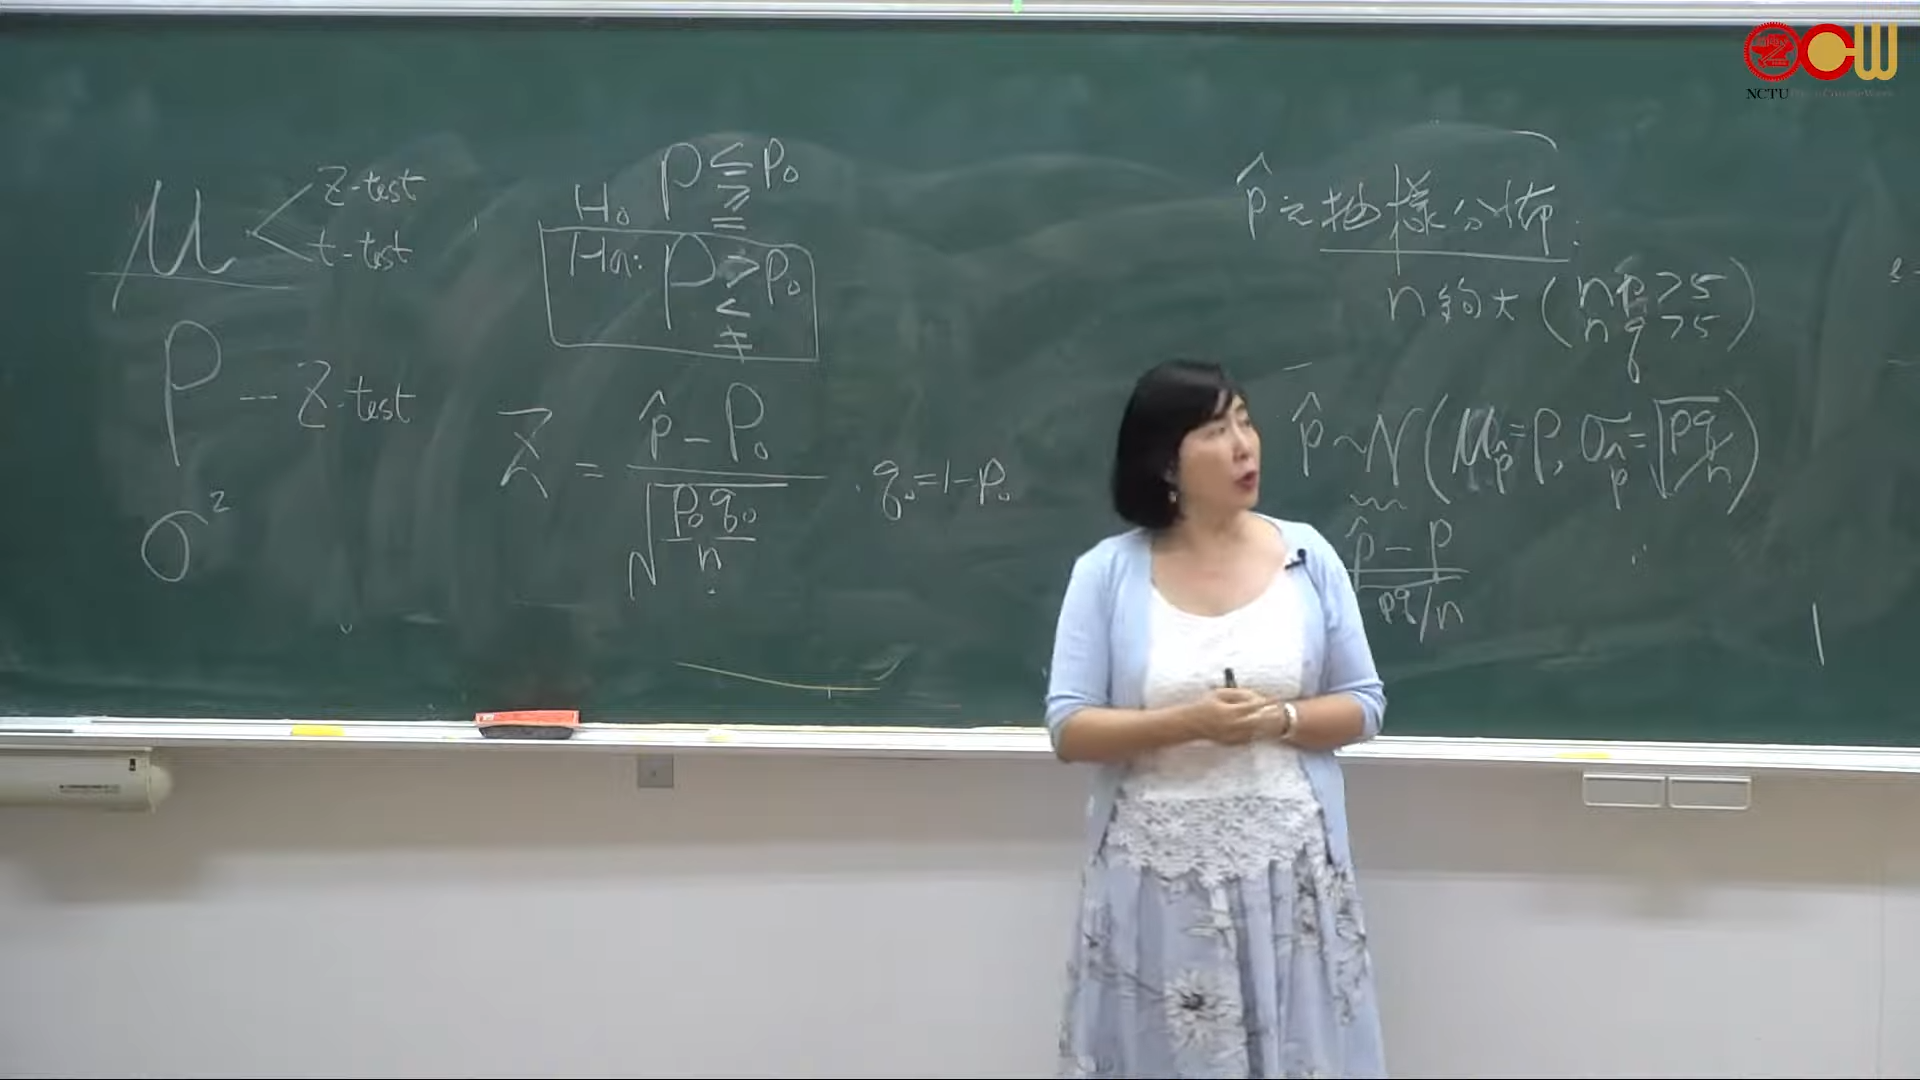 μ < Z-test
t-test
P -- Z-test
σ²
H₀ P ≤ P₀
≥
=
Ha: P > P₀
<
≠
Z = (p̂ - P₀) / √(P₀q₀/n) . q₀ = 1 - P₀
p̂ 之抽樣分佈:
n 夠大 (np > 5
nq > 5)
p̂ ~ N (μp̂ = P, σp̂ = √(pq/n))
p̂ - p
pq/n
NCTU
OCW